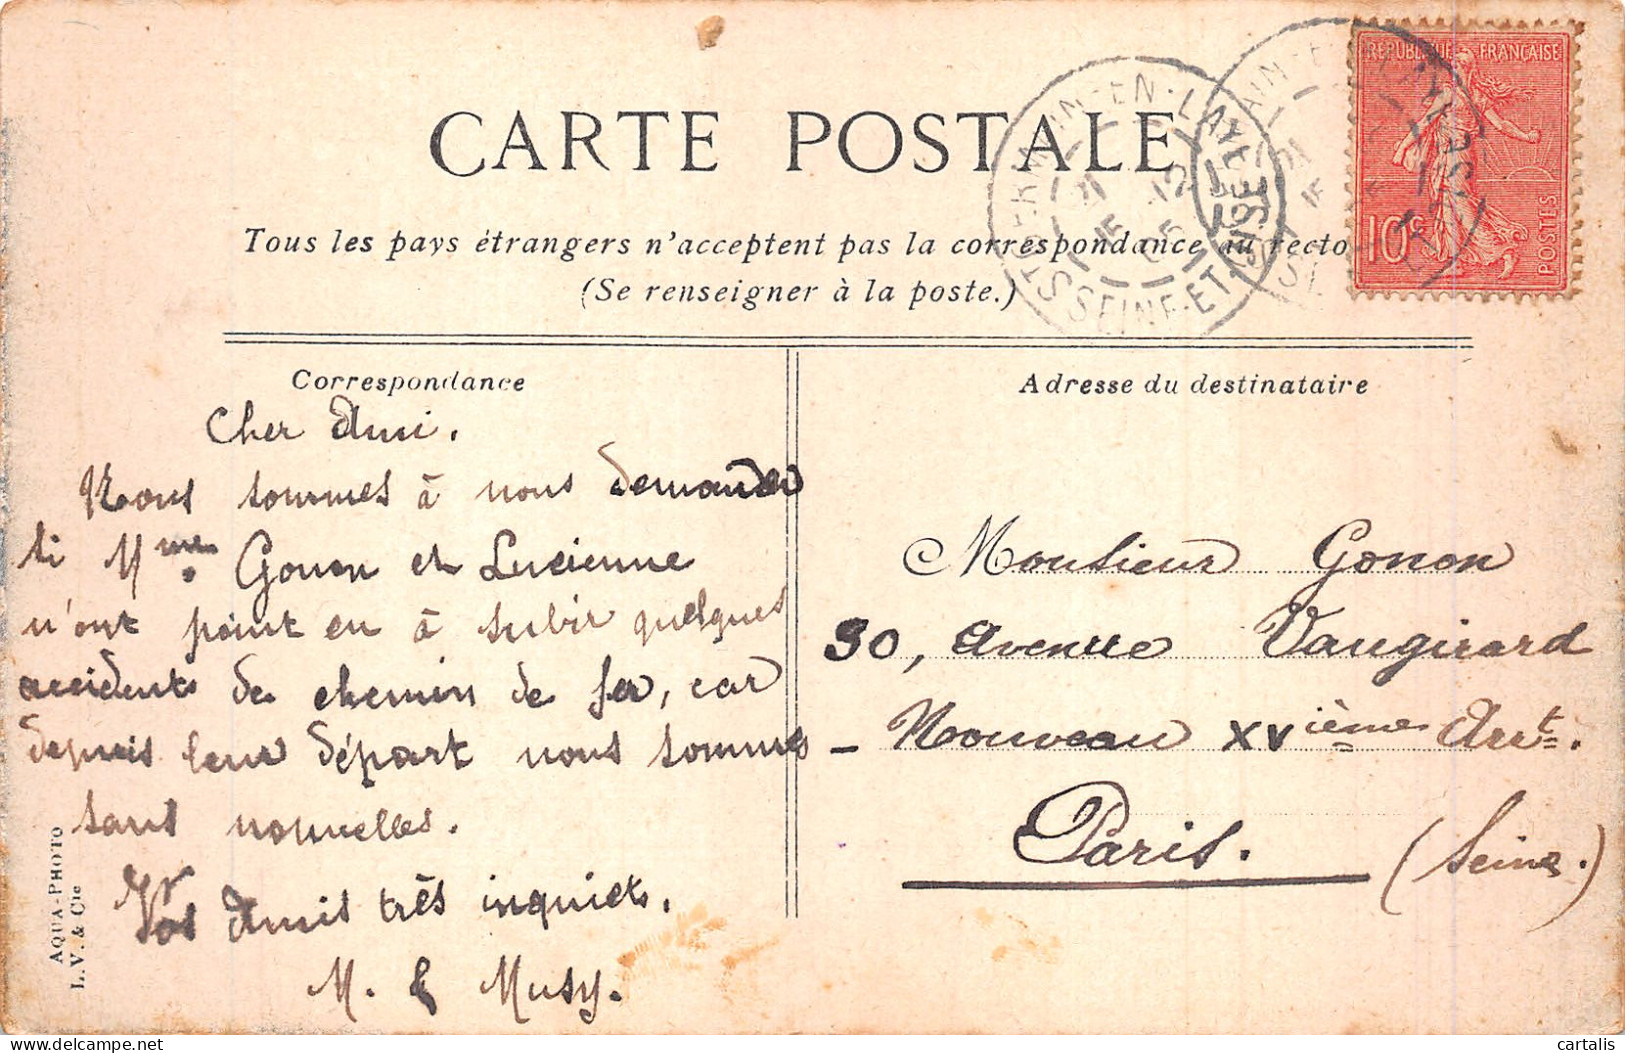 CARTE POSTALE
Tous les pays étrangers n'acceptent pas la correspondance au recto
(Se renseigner à la poste.)
REPUBLIQUE FRANÇAISE
10c
POSTES
ST GERMAIN-EN-LAYE
SEINE-ET-OISE
Correspondance
Cher Ami.
Nous sommes à nous demander
si Mme. Gonon et Lucienne
n'ont point eu à subir quelques
accidents de chemin de fer, car
depuis leur départ nous sommes
sans nouvelles.
Vos Amis très inquiets.
M. & Musy.
AQUA-PHOTO
L.V. & Cie
Adresse du destinataire
Monsieur Gonon
30, Avenue Vaugirard
- Nouveau XVième Arrt.
Paris.
(Seine.)
cartalis
delcampe.net